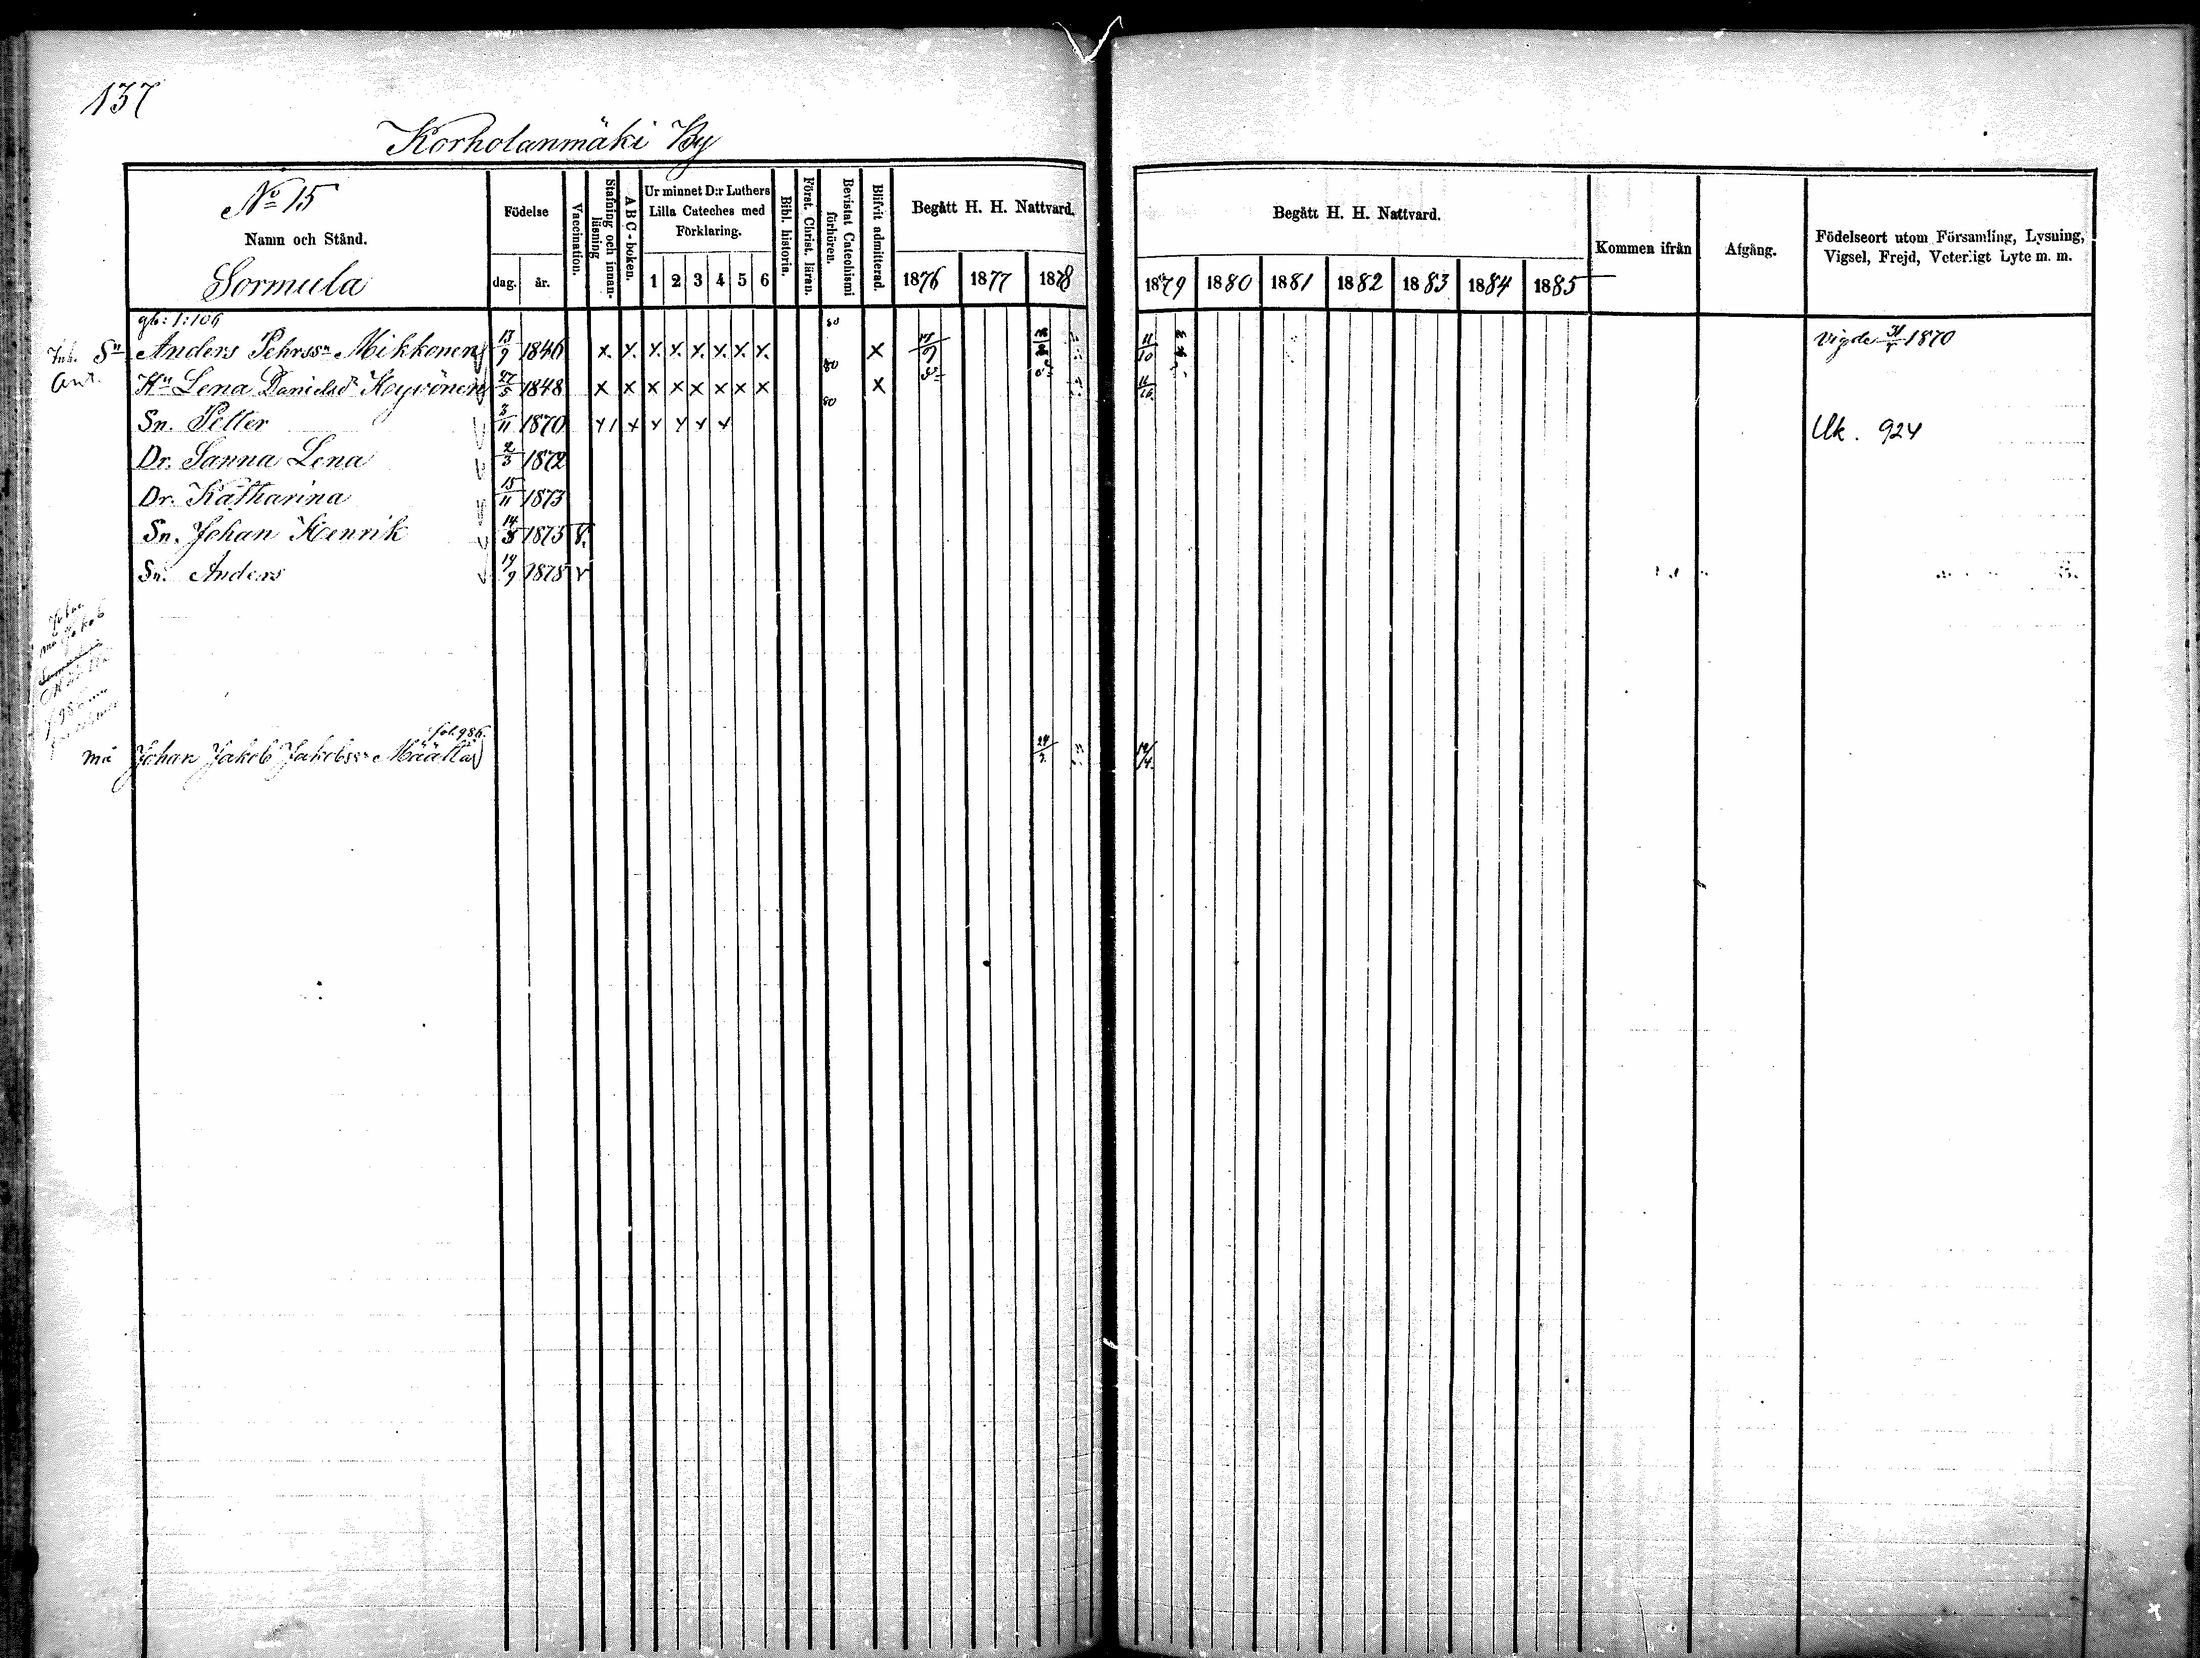 137
Korholanmäki By
No 15
Namn och Stånd.
Sormula
Födelse
dag. år.
Vaccination.
Stafning och innan-läsning
A B C - boken.
Ur minnet D:r Luthers Lilla Cateches med Förklaring.
1 2 3 4 5 6
Bibl. historia.
Först. Christ. läran.
Bevistat Catechismi förhören.
Blifvit admitterad.
Begått H. H. Nattvard.
1876 1877 1878
Begått H. H. Nattvard.
1879 1880 1881 1882 1883 1884 1885
Kommen ifrån
Afgång.
Födelseort utom Församling, Lysning, Vigsel, Frejd, Veterligt Lyte m. m.
gb: 1:106
Sn Anders Pehrssn Mikkonen 13/9 1846 x x x x x x x x x 11/10 Vigde 1870
Hu Lena Danielsdr Heyvönen 27/5 1848 x x x x x x x x x
Sn. Petter 3/11 1870 Uk. 924
Dr. Sanna Lena 2/3 1872
Dr. Katharina 15/11 1873
Sn. Johan Henrik 14/8 1875 v.
Sn. Anders 14/9 1878 v
fol. 986.
må Johan Jakob Jakobssn Määttä 24/3